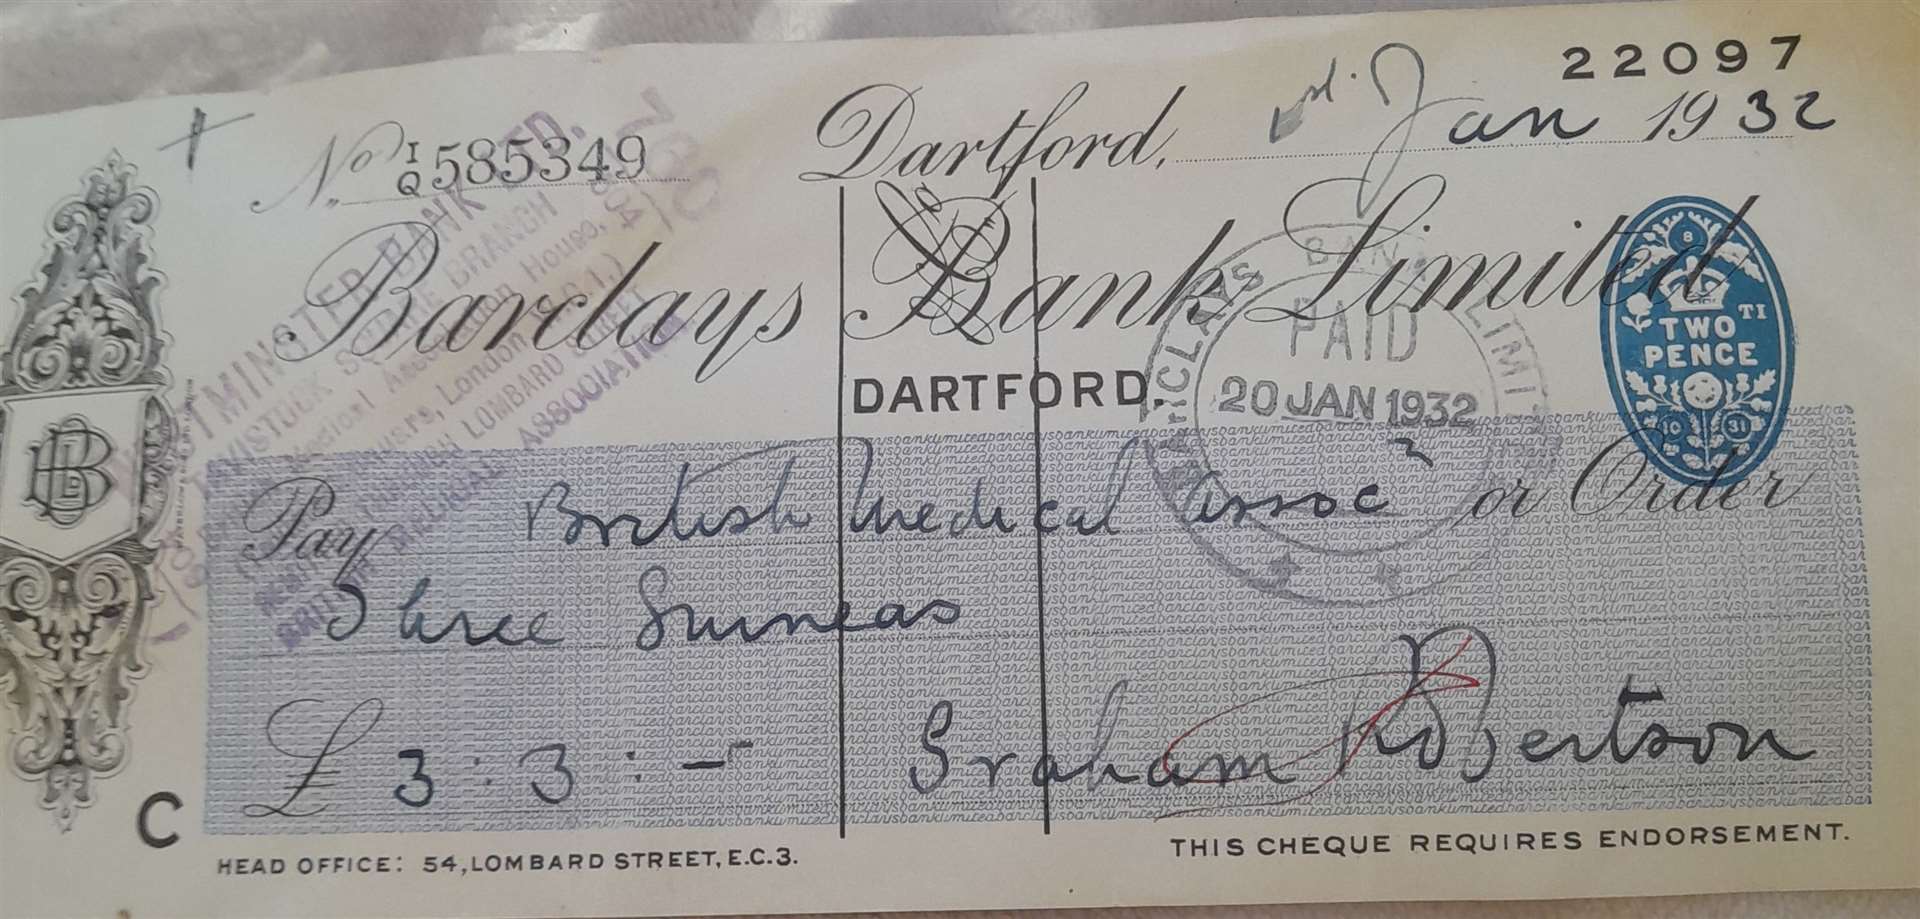 22097
No. I/Q 585349 Dartford, 1st. Jan 1932
Barclays Bank Limited
DARTFORD.
BARCLAYS BANK LIMITED
PAID
20 JAN 1932
8
TWO TI
PENCE
10 31
WESTMINSTER BANK LTD.
TAVISTOCK SQUARE BRANCH
Medical Association House,
London, W.C.1.)
LOMBARD STREET
BRITISH MEDICAL ASSOCIATION
Pay British Medical Assoc n or Order
Three Guineas
£ 3 : 3 : - Graham Robertson
C
HEAD OFFICE: 54, LOMBARD STREET, E.C.3.
THIS CHEQUE REQUIRES ENDORSEMENT.